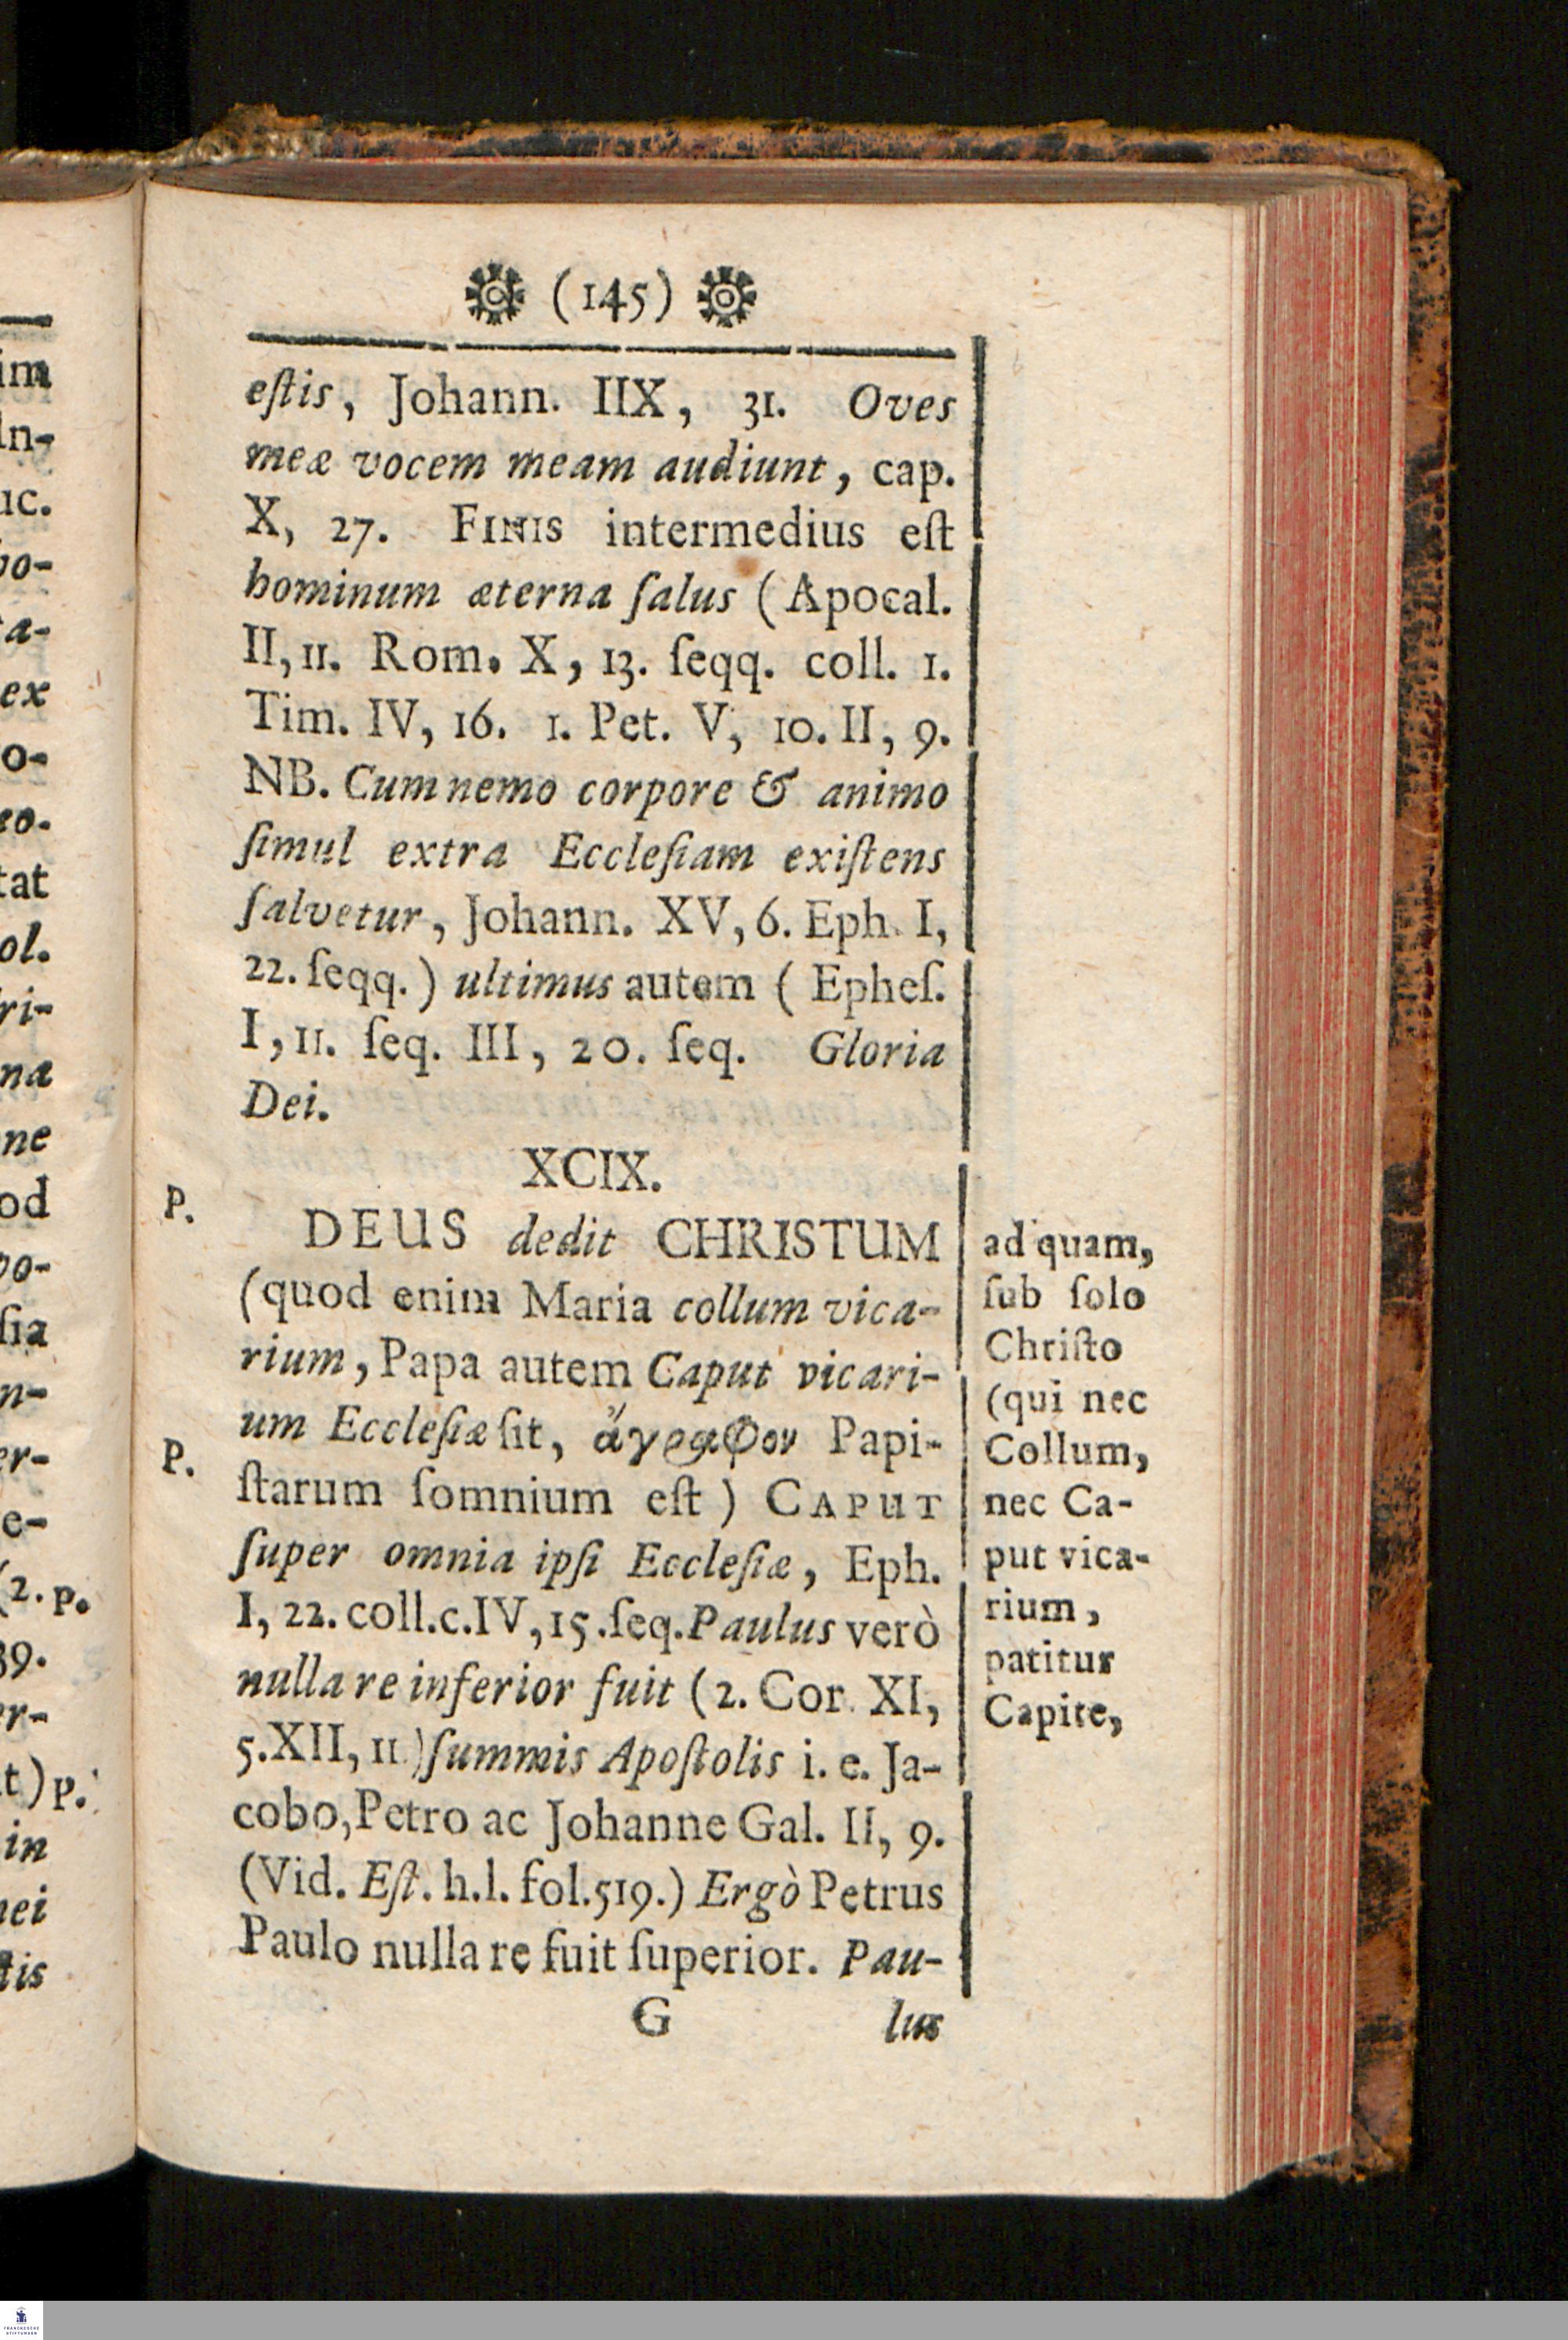 (145)
eſtis, Johann. IIX, 31. Oves
meæ vocem meam audiunt, cap.
X, 27. FINIS intermedius eſt
hominum æterna ſalus (Apocal.
II, 11. Rom. X, 13. ſeqq. coll. 1.
Tim. IV, 16. 1. Pet. V, 10. II, 9.
NB. Cum nemo corpore & animo
ſimul extra Eccleſiam exiſtens
ſalvetur, Johann. XV, 6. Eph. I,
22. ſeqq.) ultimus autem (Epheſ.
I, 11. ſeq. III, 20. ſeq. Gloria
Dei.
XCIX.
P.
DEUS dedit CHRISTUM
(quod enim Maria collum vica-
rium, Papa autem Caput vicari-
um Eccleſiæ ſit, ἄγραφον Papi-
P.
ſtarum ſomnium eſt) CAPUT
ſuper omnia ipſi Eccleſiæ, Eph.
I, 22. coll. c. IV, 15. ſeq. Paulus verò
nulla re inferior fuit (2. Cor. XI,
5. XII, 11.) ſummis Apoſtolis i. e. Ja-
cobo, Petro ac Johanne Gal. II, 9.
(Vid. Eſt. h. l. fol. 519.) Ergò Petrus
Paulo nulla re fuit ſuperior. Pau-
G lus
ad quam,
ſub ſolo
Chriſto
(qui nec
Collum,
nec Ca-
put vica-
rium,
patitur
Capite,
im
ln-
uc.
po-
a-
ex
o-
eo.
tat
ol.
ri-
na
ne
od
po-
ſia
n-
er-
e-
(2. p.
39.
er-
t) p.
in
nei
ſtis
FRANCKESCHE
STIFTUNGEN